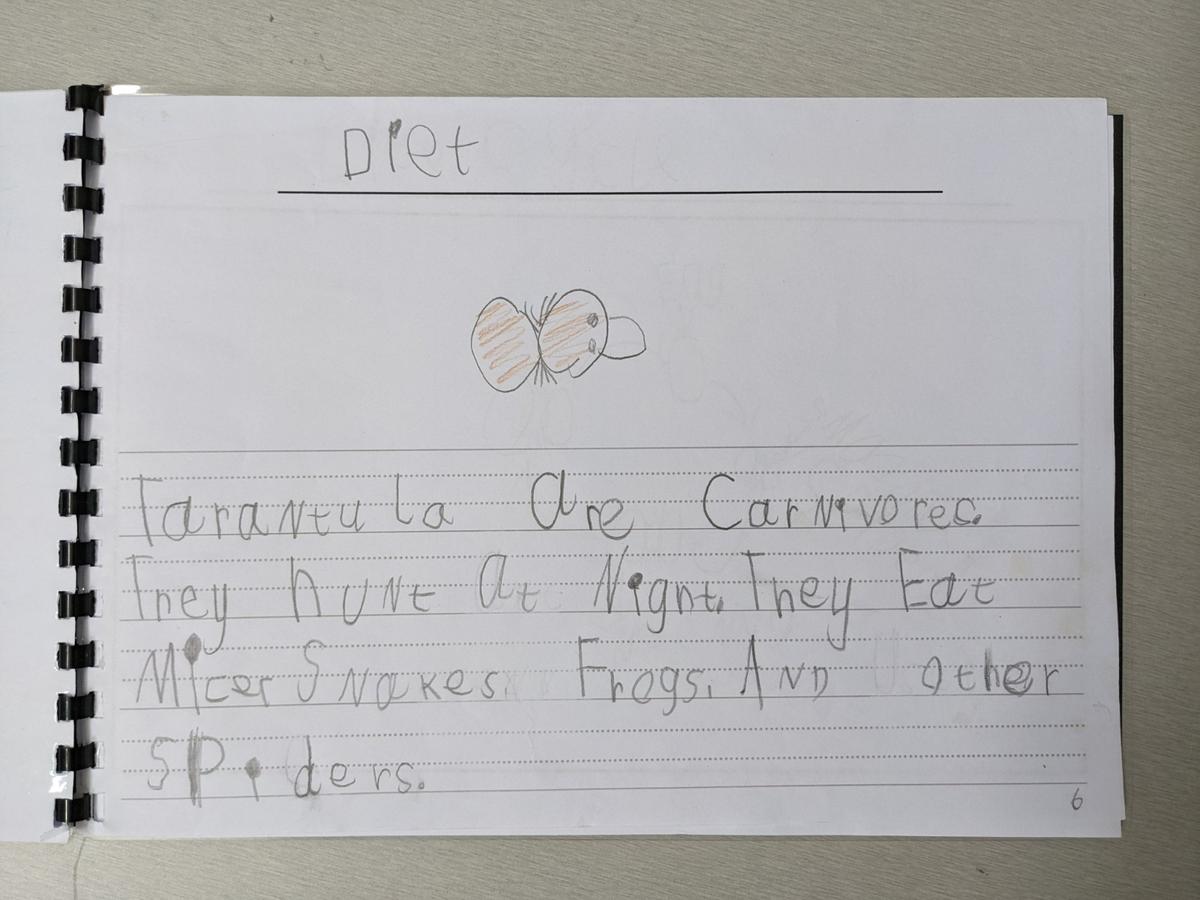 Diet
Tarantula are Carnivores.
They hunt at Night. They Eat
Mice, Snakes, Frogs, AND other
SPiders.
6